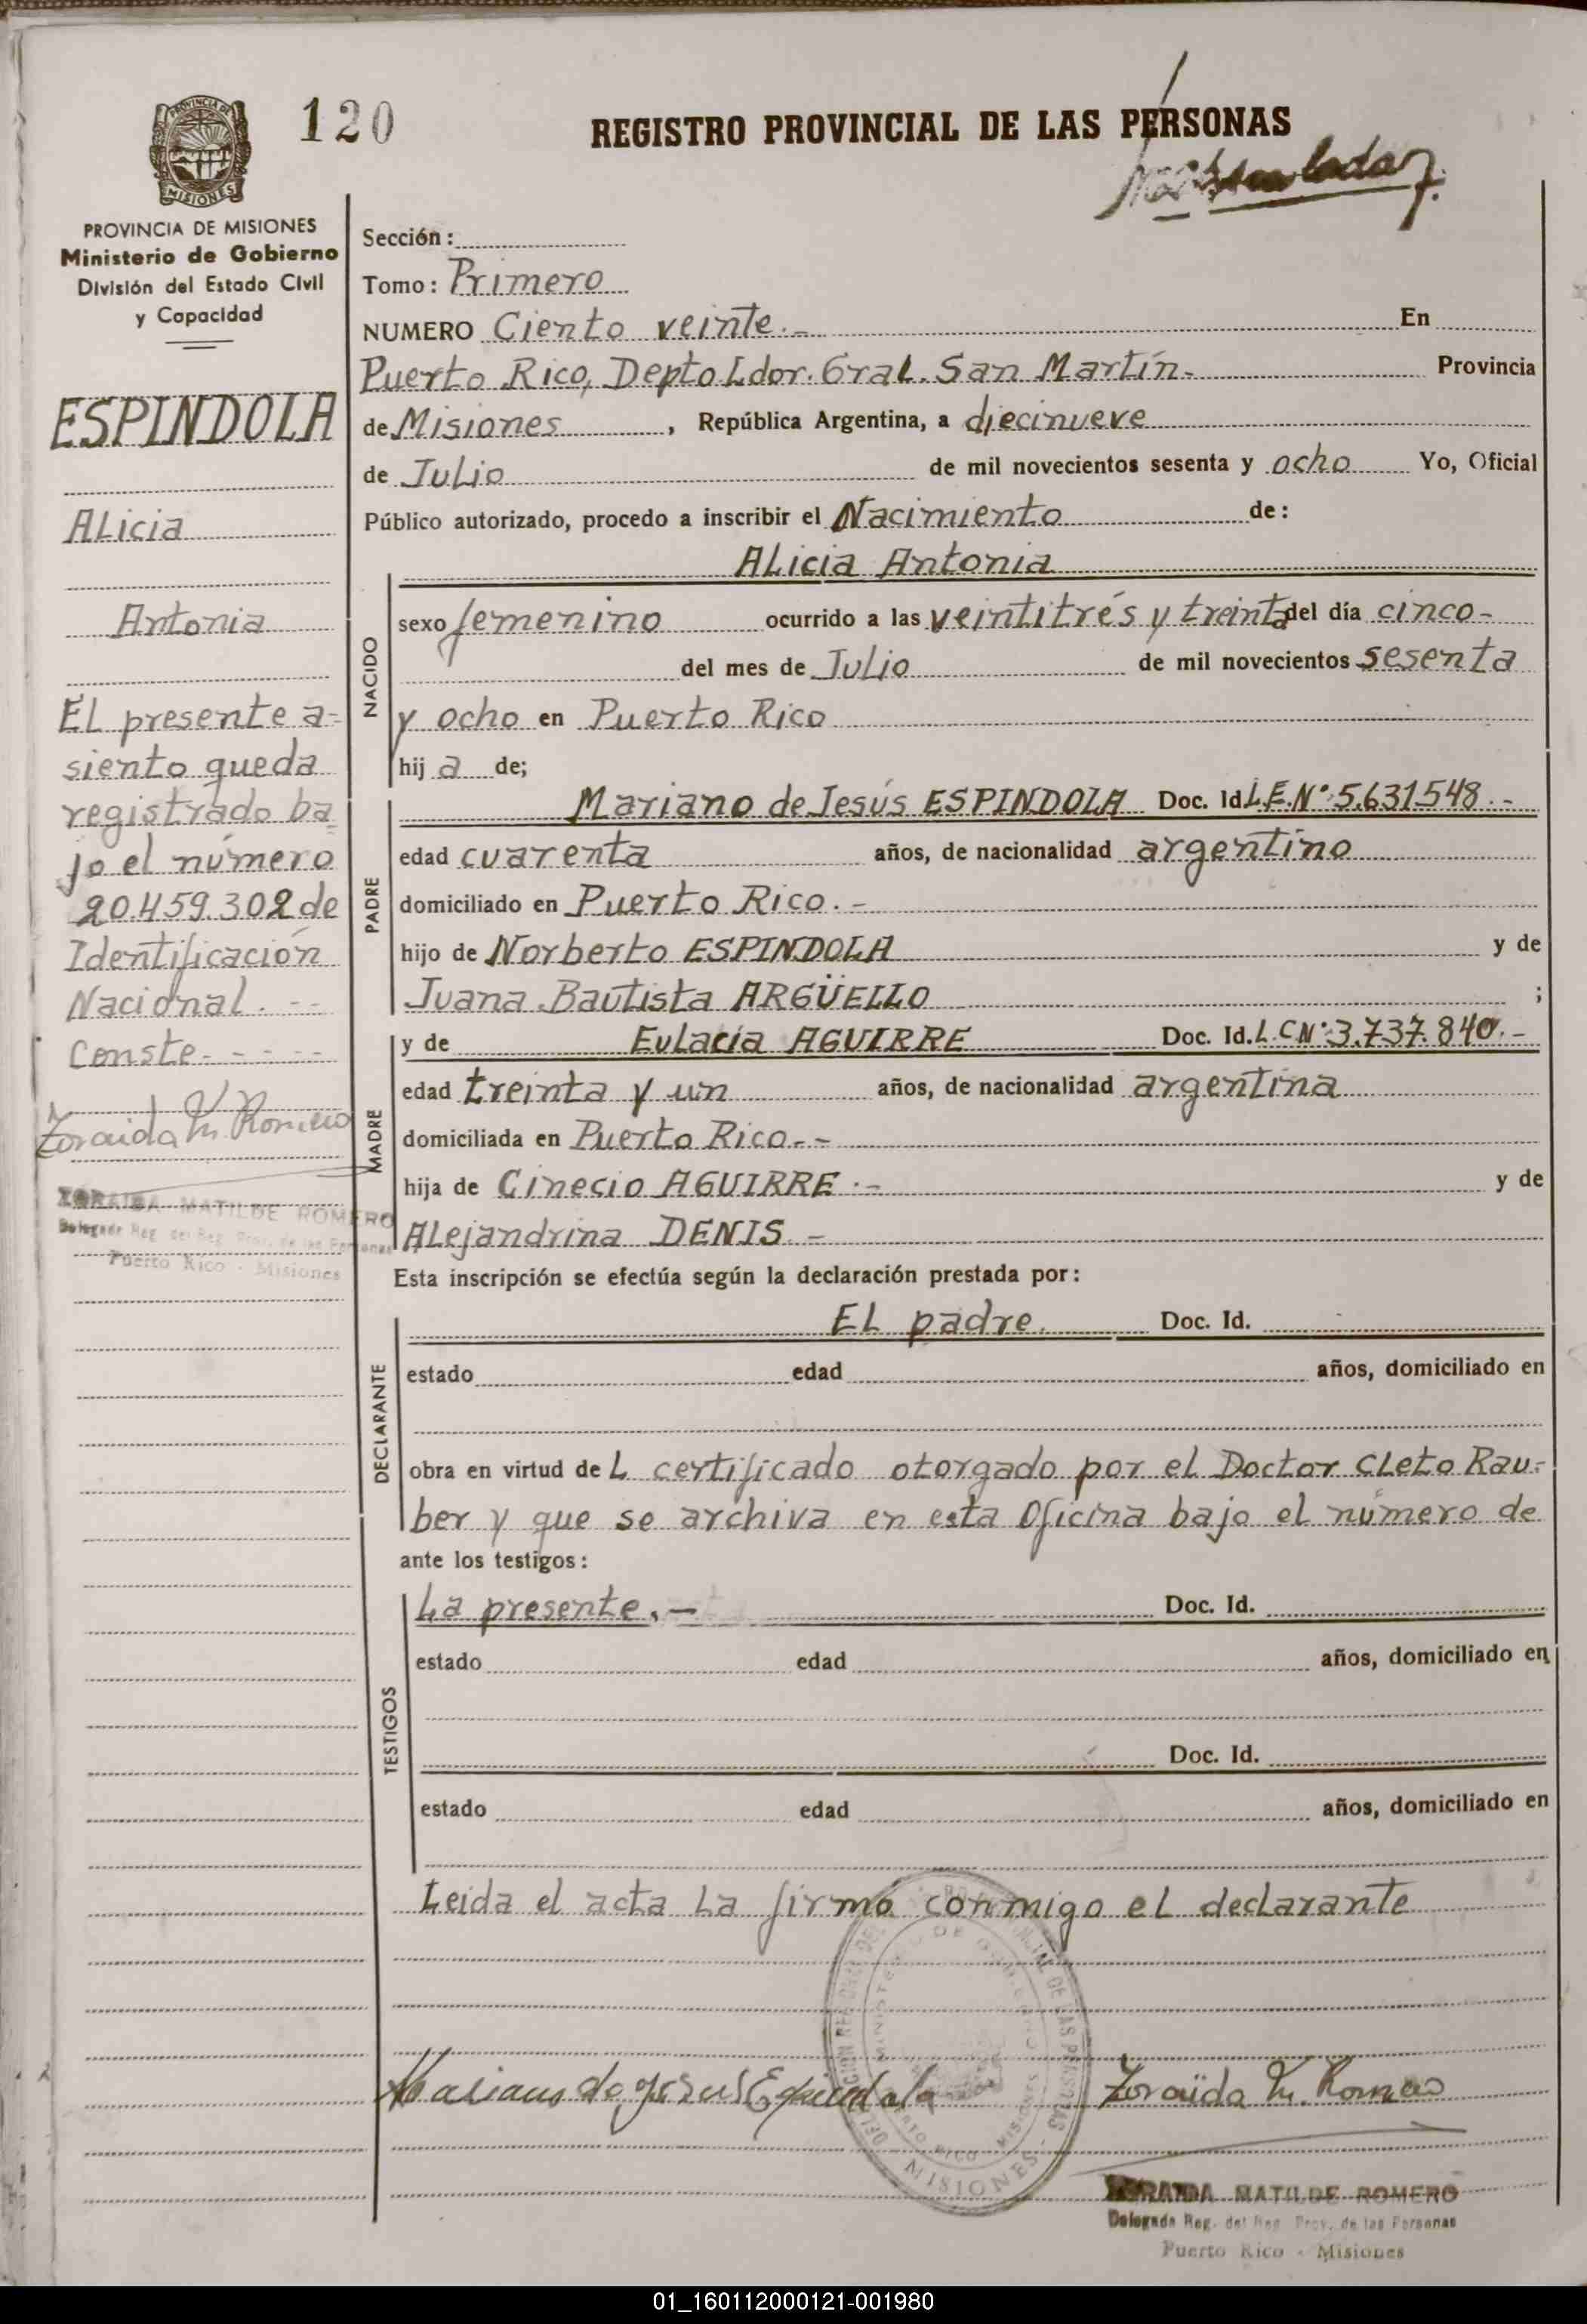 120
REGISTRO PROVINCIAL DE LAS PERSONAS
MISIONES
PROVINCIA DE MISIONES
Ministerio de Gobierno
División del Estado Civil
y Capacidad
ESPINDOLA
Alicia
Antonia
El presente a-
siento queda
registrado ba
jo el número
20.459.302 de
Identificación
Nacional. --
Conste- - - - -
Zoraida M. Romero
ZORAIDA MATILDE ROMERO
Delegada Reg. del Reg. Prov. de las Personas
Puerto Rico - Misiones
Sección:
Tomo: Primero
NUMERO Ciento veinte.- En
Puerto Rico, Depto Ldor. Gral. San Martín- Provincia
de Misiones, República Argentina, a diecinueve
de Julio de mil novecientos sesenta y ocho Yo, Oficial
Público autorizado, procedo a inscribir el Nacimiento de:
NACIDO
Alicia Antonia
sexo femenino ocurrido a las veintitrés y treinta del día cinco-
del mes de Julio de mil novecientos sesenta
y ocho en Puerto Rico
hij a de;
PADRE
Mariano de Jesús ESPINDOLA Doc. Id. L.E.N°:5.631.548.-
edad cuarenta años, de nacionalidad argentino
domiciliado en Puerto Rico.-
hijo de Norberto ESPINDOLA y de
Juana Bautista ARGÜELLO ;
MADRE
y de Eulacia AGUIRRE Doc. Id. L.C N°:3.737.840.-
edad treinta y un años, de nacionalidad argentina
domiciliada en Puerto Rico.--
hija de Cinecio AGUIRRE.- y de
Alejandrina DENIS.-
Esta inscripción se efectúa según la declaración prestada por:
DECLARANTE
El padre. Doc. Id.
estado edad años, domiciliado en
obra en virtud de l certificado otorgado por el Doctor Cleto Rau-
ber y que se archiva en esta Oficina bajo el número de
ante los testigos:
TESTIGOS
La presente.- Doc. Id.
estado edad años, domiciliado en
Doc. Id.
estado edad años, domiciliado en
Leida el acta la firma conmigo el declarante
Mariano de Jesus Espindola
Zoraida M. Romero
MISIONES
ZORAIDA MATILDE ROMERO
Delegada Reg. del Reg. Prov. de las Personas
Puerto Rico - Misiones
01_160112000121-001980